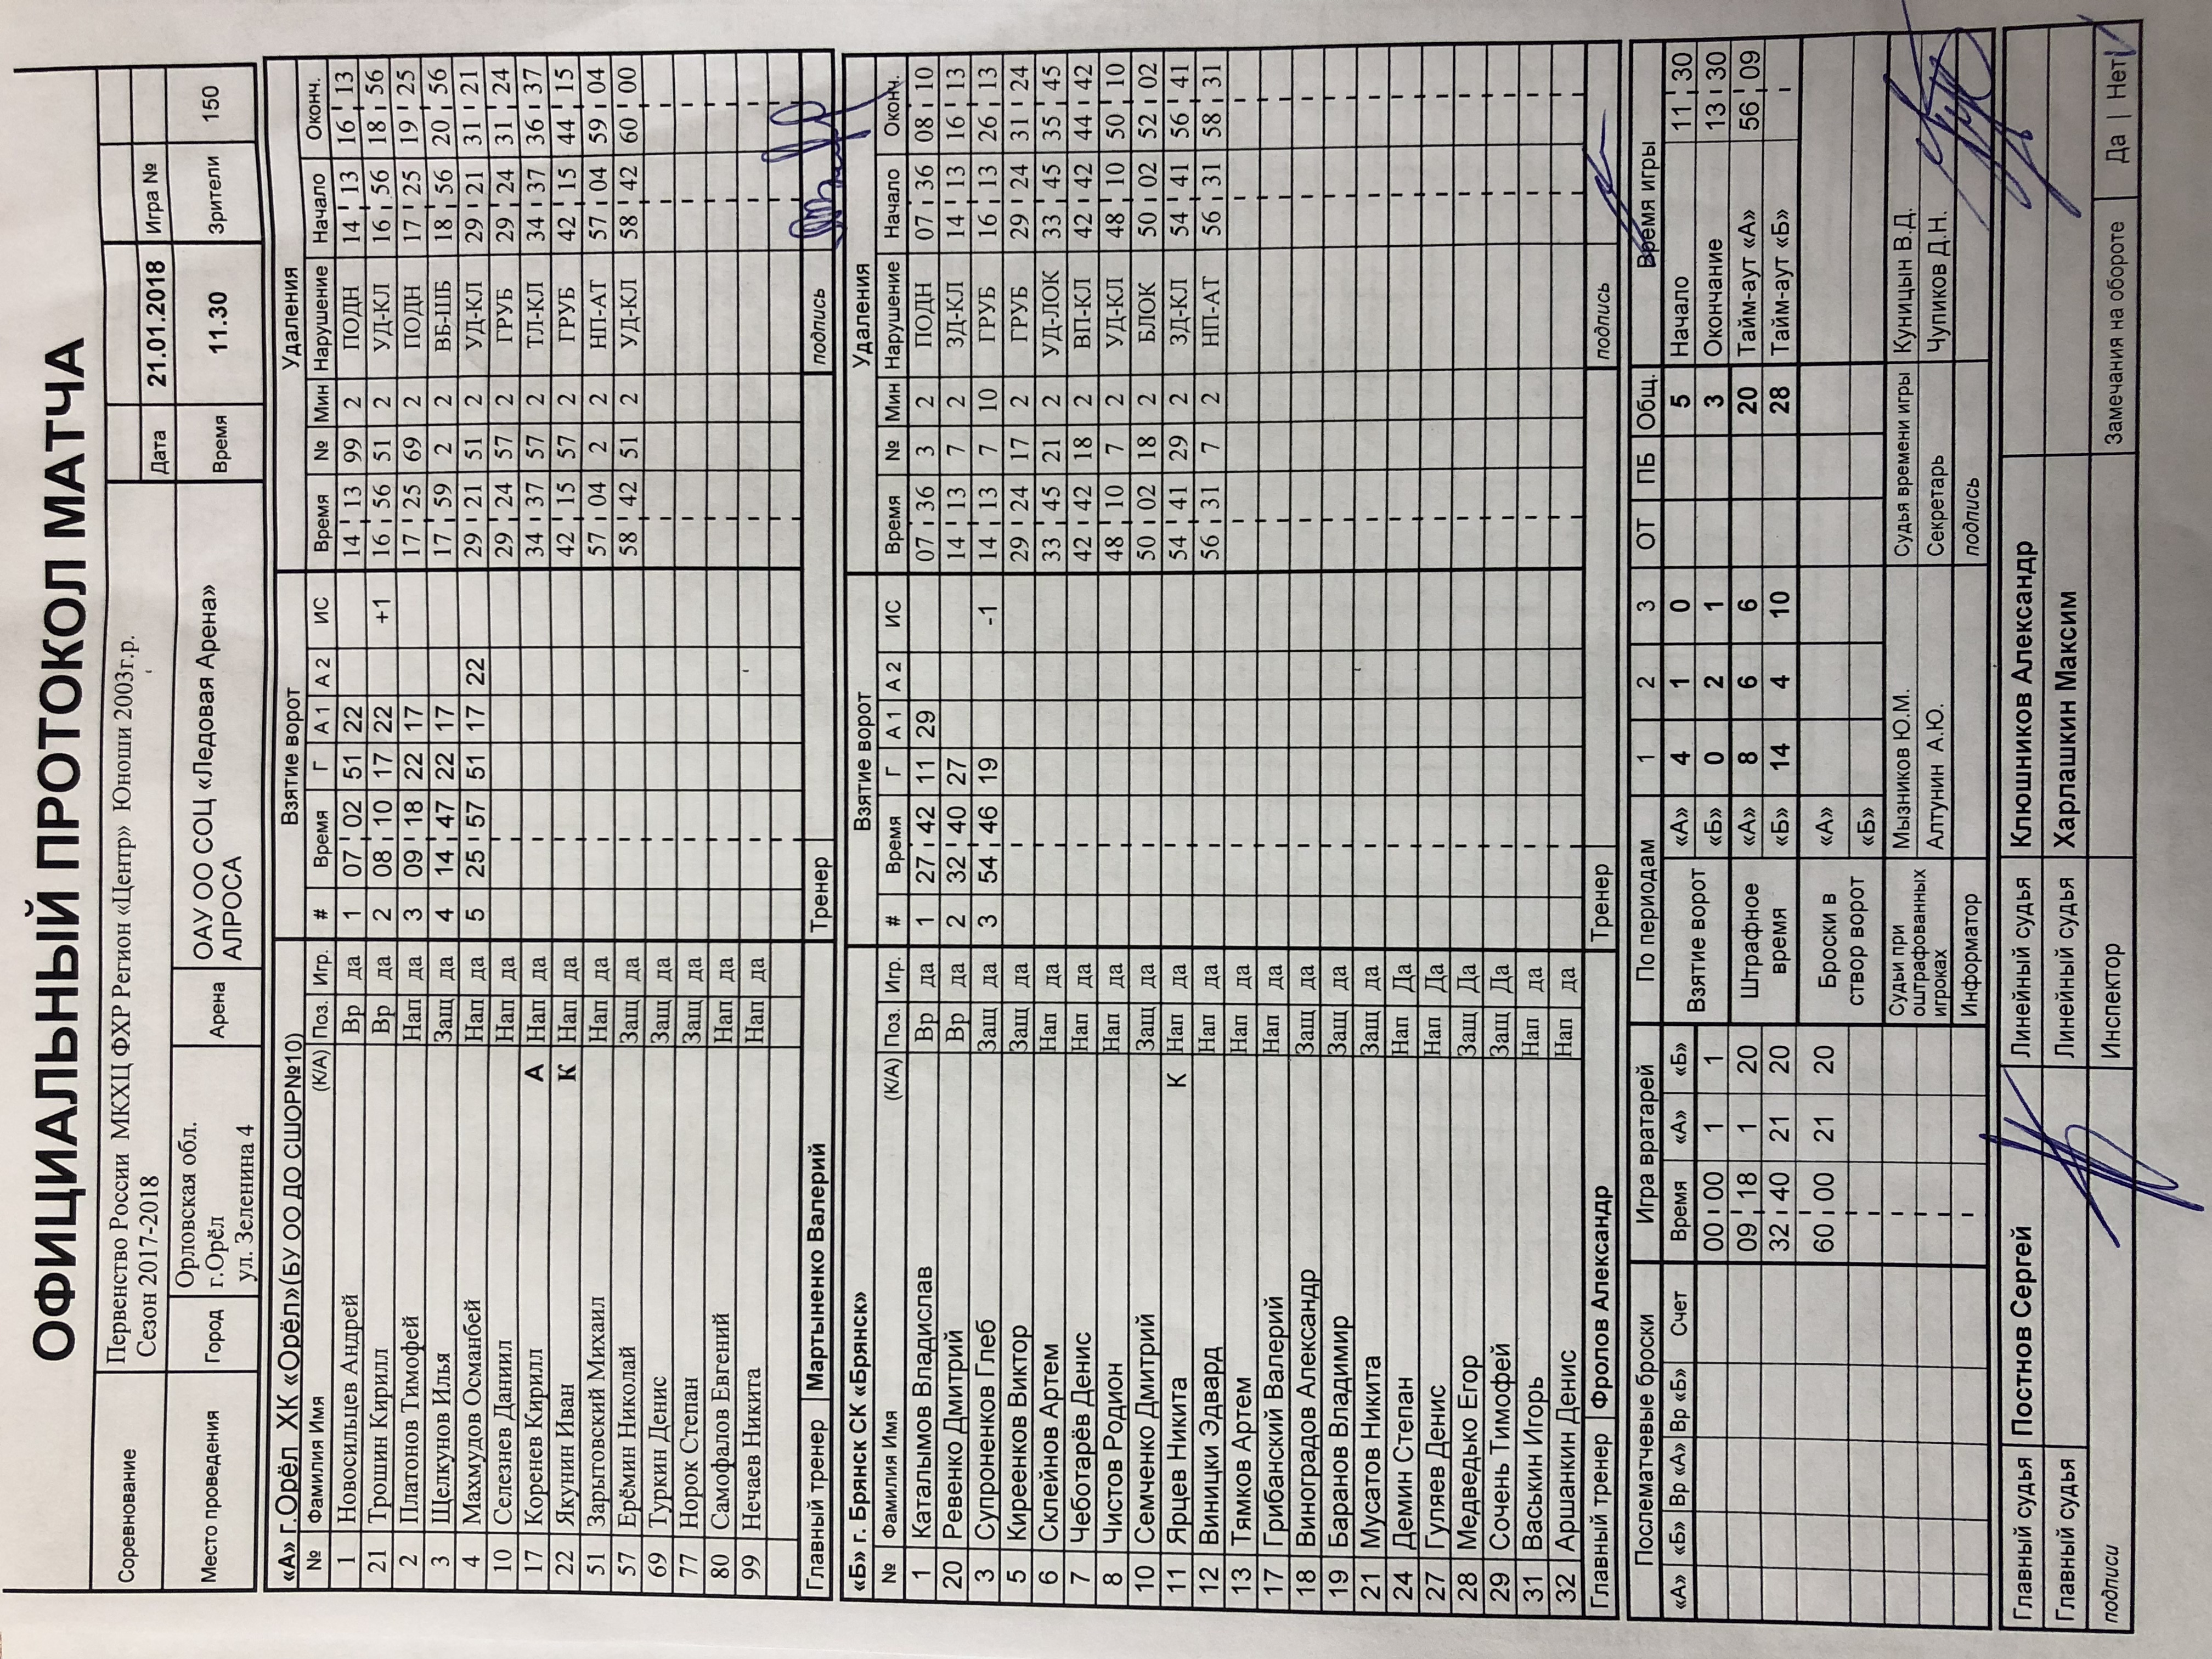 ОФИЦИАЛЬНЫЙ ПРОТОКОЛ МАТЧА
Соревнование Первенство России МКХЦ ФХР Регион «Центр» Юноши 2003г.р. Сезон 2017-2018 Дата 21.01.2018 Игра №
Место проведения Город Орловская обл. г.Орёл ул. Зеленина 4 Арена ОАУ ОО СОЦ «Ледовая Арена» АЛРОСА Время 11.30 Зрители 150
«А» г.Орёл ХК «Орёл»(БУ ОО ДО СШОР№10) Взятие ворот Удаления
№ Фамилия Имя (К/А) Поз. Игр. # Время Г А 1 А 2 ИС Время № Мин Нарушение Начало Оконч.
1 Новосильцев Андрей Вр да 1 07 02 51 22 14 13 99 2 ПОДН 14 13 16 13
21 Трошин Кирилл Вр да 2 08 10 17 22 +1 16 56 51 2 УД-КЛ 16 56 18 56
2 Платонов Тимофей Нап да 3 09 18 22 17 17 25 69 2 ПОДН 17 25 19 25
3 Щелкунов Илья Защ да 4 14 47 22 17 17 59 2 2 ВБ-ШБ 18 56 20 56
4 Махмудов Османбей Нап да 5 25 57 51 17 22 29 21 51 2 УД-КЛ 29 21 31 21
10 Селезнев Даниил Нап да 29 24 57 2 ГРУБ 29 24 31 24
17 Коренев Кирилл А Нап да 34 37 57 2 ТЛ-КЛ 34 37 36 37
22 Якунин Иван К Нап да 42 15 57 2 ГРУБ 42 15 44 15
51 Зарытовский Михаил Нап да 57 04 2 2 НП-АТ 57 04 59 04
57 Ерёмин Николай Защ да 58 42 51 2 УД-КЛ 58 42 60 00
69 Туркин Денис Защ да
77 Норок Степан Защ да
80 Самофалов Евгений Нап да
99 Нечаев Никита Нап да
Главный тренер Мартыненко Валерий Тренер подпись
«Б» г. Брянск СК «Брянск» Взятие ворот Удаления
№ Фамилия Имя (К/А) Поз. Игр. # Время Г А 1 А 2 ИС Время № Мин Нарушение Начало Оконч.
1 Каталымов Владислав Вр да 1 27 42 11 29 07 36 3 2 ПОДН 07 36 08 10
20 Ревенко Дмитрий Вр да 2 32 40 27 14 13 7 2 ЗД-КЛ 14 13 16 13
3 Супроненков Глеб Защ да 3 54 46 19 -1 14 13 7 10 ГРУБ 16 13 26 13
5 Киреенков Виктор Защ да 29 24 17 2 ГРУБ 29 24 31 24
6 Склейнов Артем Нап да 33 45 21 2 УД-ЛОК 33 45 35 45
7 Чеботарёв Денис Нап да 42 42 18 2 ВП-КЛ 42 42 44 42
8 Чистов Родион Нап да 48 10 7 2 УД-КЛ 48 10 50 10
10 Семченко Дмитрий Защ да 50 02 18 2 БЛОК 50 02 52 02
11 Ярцев Никита К Нап да 54 41 29 2 ЗД-КЛ 54 41 56 41
12 Виницки Эдвард Нап да 56 31 7 2 НП-АТ 56 31 58 31
13 Тямков Артем Нап да
17 Грибанский Валерий Нап да
18 Виноградов Александр Защ да
19 Баранов Владимир Защ да
21 Мусатов Никита Защ да
24 Демин Степан Нап Да
27 Гуляев Денис Нап Да
28 Медведько Егор Защ Да
29 Сочень Тимофей Защ Да
31 Васькин Игорь Нап да
32 Аршанкин Денис Нап да
Главный тренер Фролов Александр Тренер подпись
Послематчевые броски Игра вратарей По периодам 1 2 3 ОТ ПБ Общ. Время игры
«А» «Б» Вр «А» Вр «Б» Счет Время «А» «Б» Взятие ворот «А» 4 1 0 5 Начало 11 30
00 00 1 1 «Б» 0 2 1 3 Окончание 13 30
09 18 1 20 Штрафное время «А» 8 6 6 20 Тайм-аут «А» 56 09
32 40 21 20 «Б» 14 4 10 28 Тайм-аут «Б»
60 00 21 20 Броски в створ ворот «А»
«Б»
Судьи при оштрафованных игроках Мызников Ю.М. Судья времени игры Куницын В.Д.
Алтунин А.Ю. Секретарь Чупиков Д.Н.
Информатор подпись
Главный судья Постнов Сергей Линейный судья Клюшников Александр
Главный судья Линейный судья Харлашкин Максим
подписи Инспектор Замечания на обороте Да | Нет V